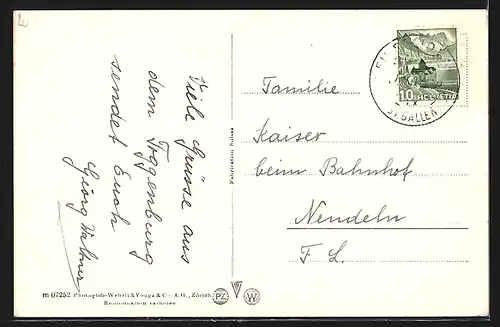 Viele Grüsse aus
dem Toggenburg
sendet Euch
Georg
Familie
Kaiser
beim Bahnhof
Nendeln
F L.
10 HELVETIA
ST. GALLEN
m 07252 Photoglob-Wehrli & Vouga & Co A.G., Zürich
Reproduktion verboten
PZ W